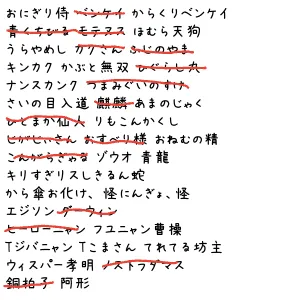 おにぎり侍 ベンケイ からくりベンケイ
青くちびる モテヌス ほむら天狗
うらやめし カクさん ふじのやま
キンカク かぶと無双 ひぐらし丸
ナンスカンク つまみぐいのすけ
さいの目入道 麒麟 あまのじゃく
ひとまか仙人 りもこんかくし
じがじいさん おすべり様 おねむの精
こんがらぎゃる ゾウオ 青龍
キリすぎリスしきるん蛇
から傘お化け、怪にんぎょ、怪
エジソン ダーウィン
ヒーローニャン フユニャン曹操
Tジバニャン Tこまさん てれてる坊主
ウィスパー孝明 ノストラダマス
銅拍子 阿形